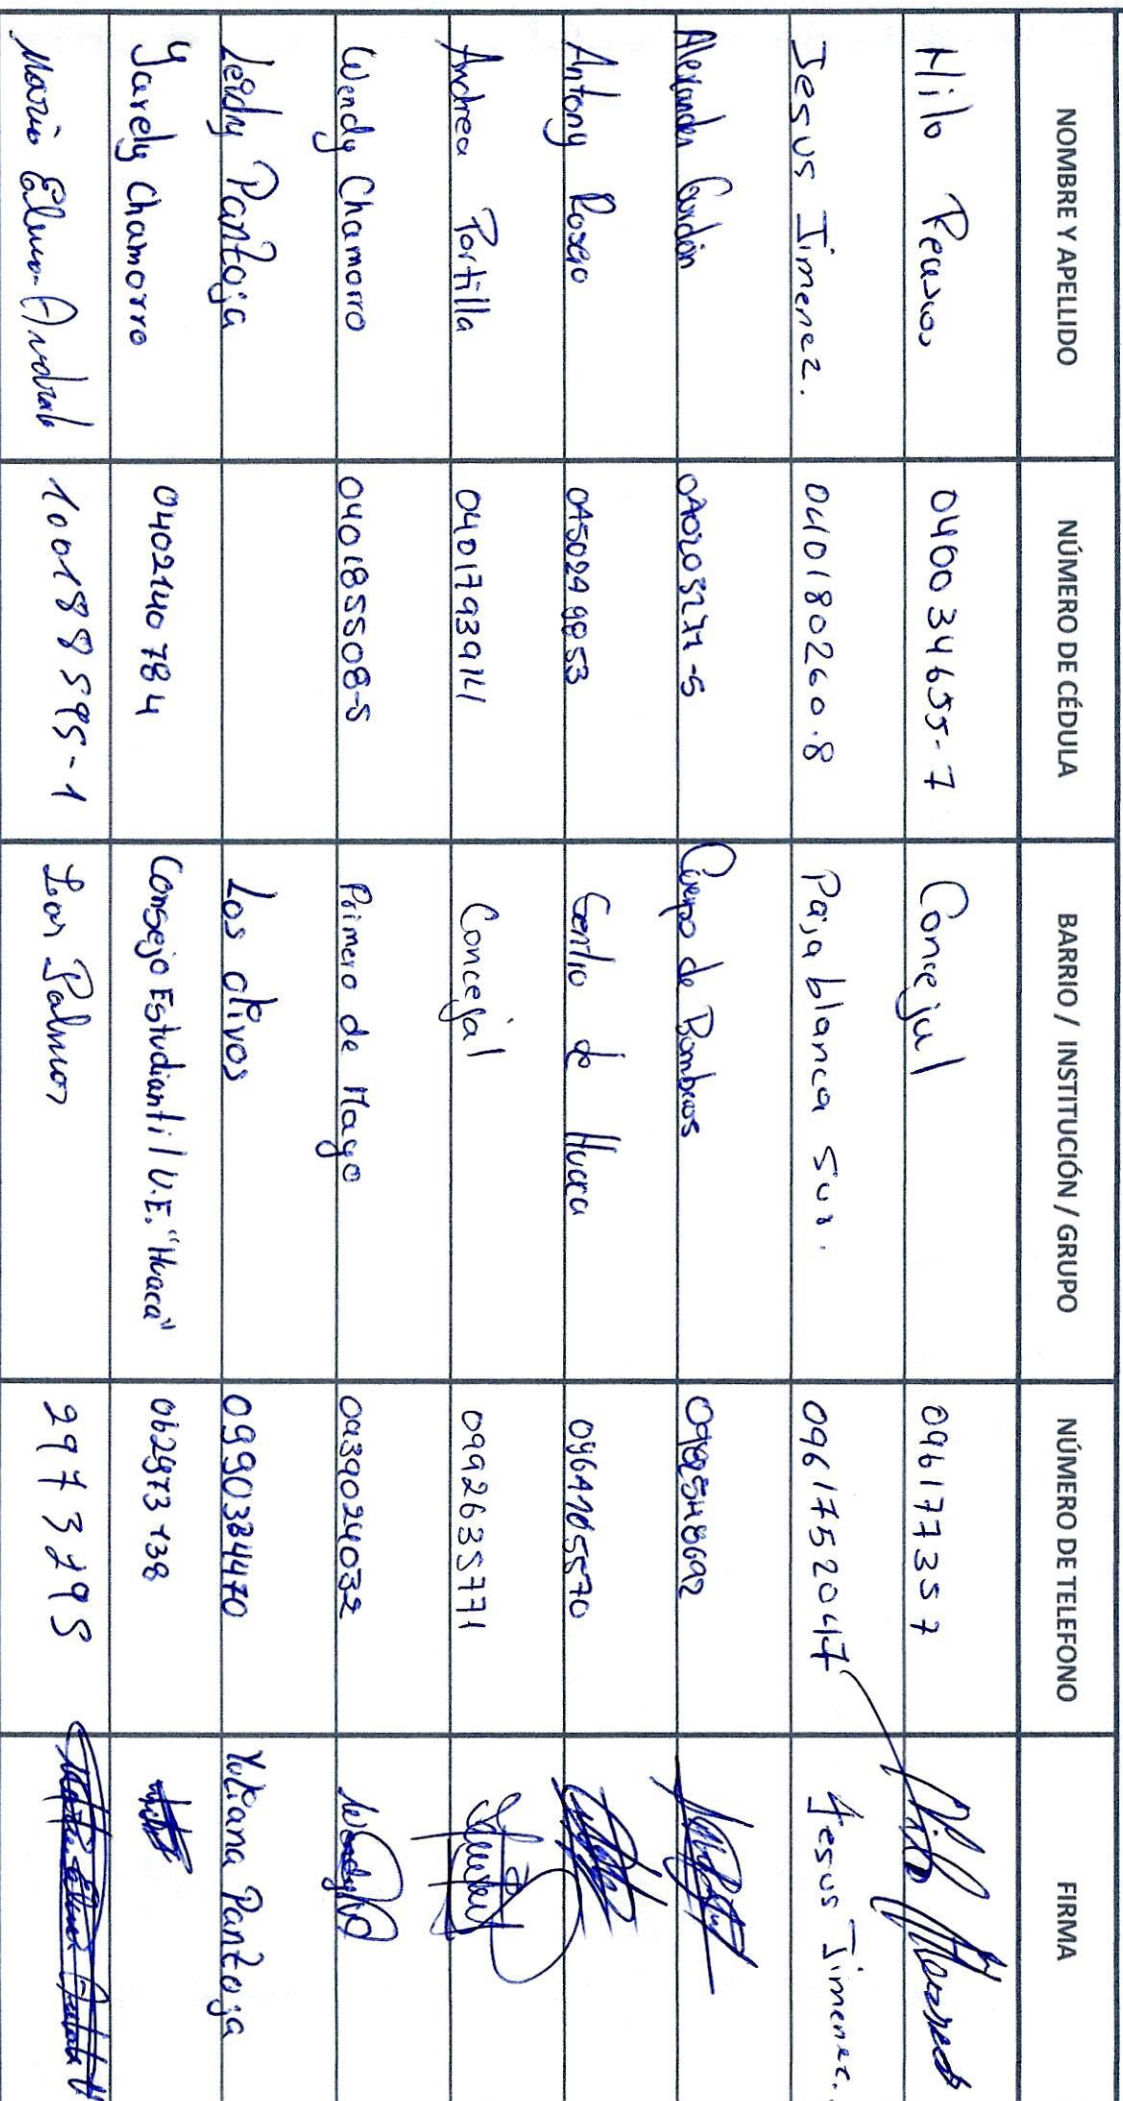 NOMBRE Y APELLIDO NÚMERO DE CÉDULA BARRIO / INSTITUCIÓN / GRUPO NÚMERO DE TELEFONO FIRMA
Hilo 040034655-7 Concejal 096177357
Jesus Jimenez. 040180260.8 Paja blanca sur. 0961752047 Jesus Jimenez.
Alexander Cuerpo de Bomberos
Antony Rosero Centro de Huaca
Andrea Portilla 0401793914 Concejal 0992635771
Wendy Chamorro 040185508-5 Primero de Mayo 0939024032 Wendy
Leidy Pantoja Los olivos 0990334470 Yuliana Pantoja
Yarely Chamorro 0402140784 Consejo Estudiantil / U.E. "Huaca" 062973138
Mario Andrade 100188595-1 Las Palmas 2973795